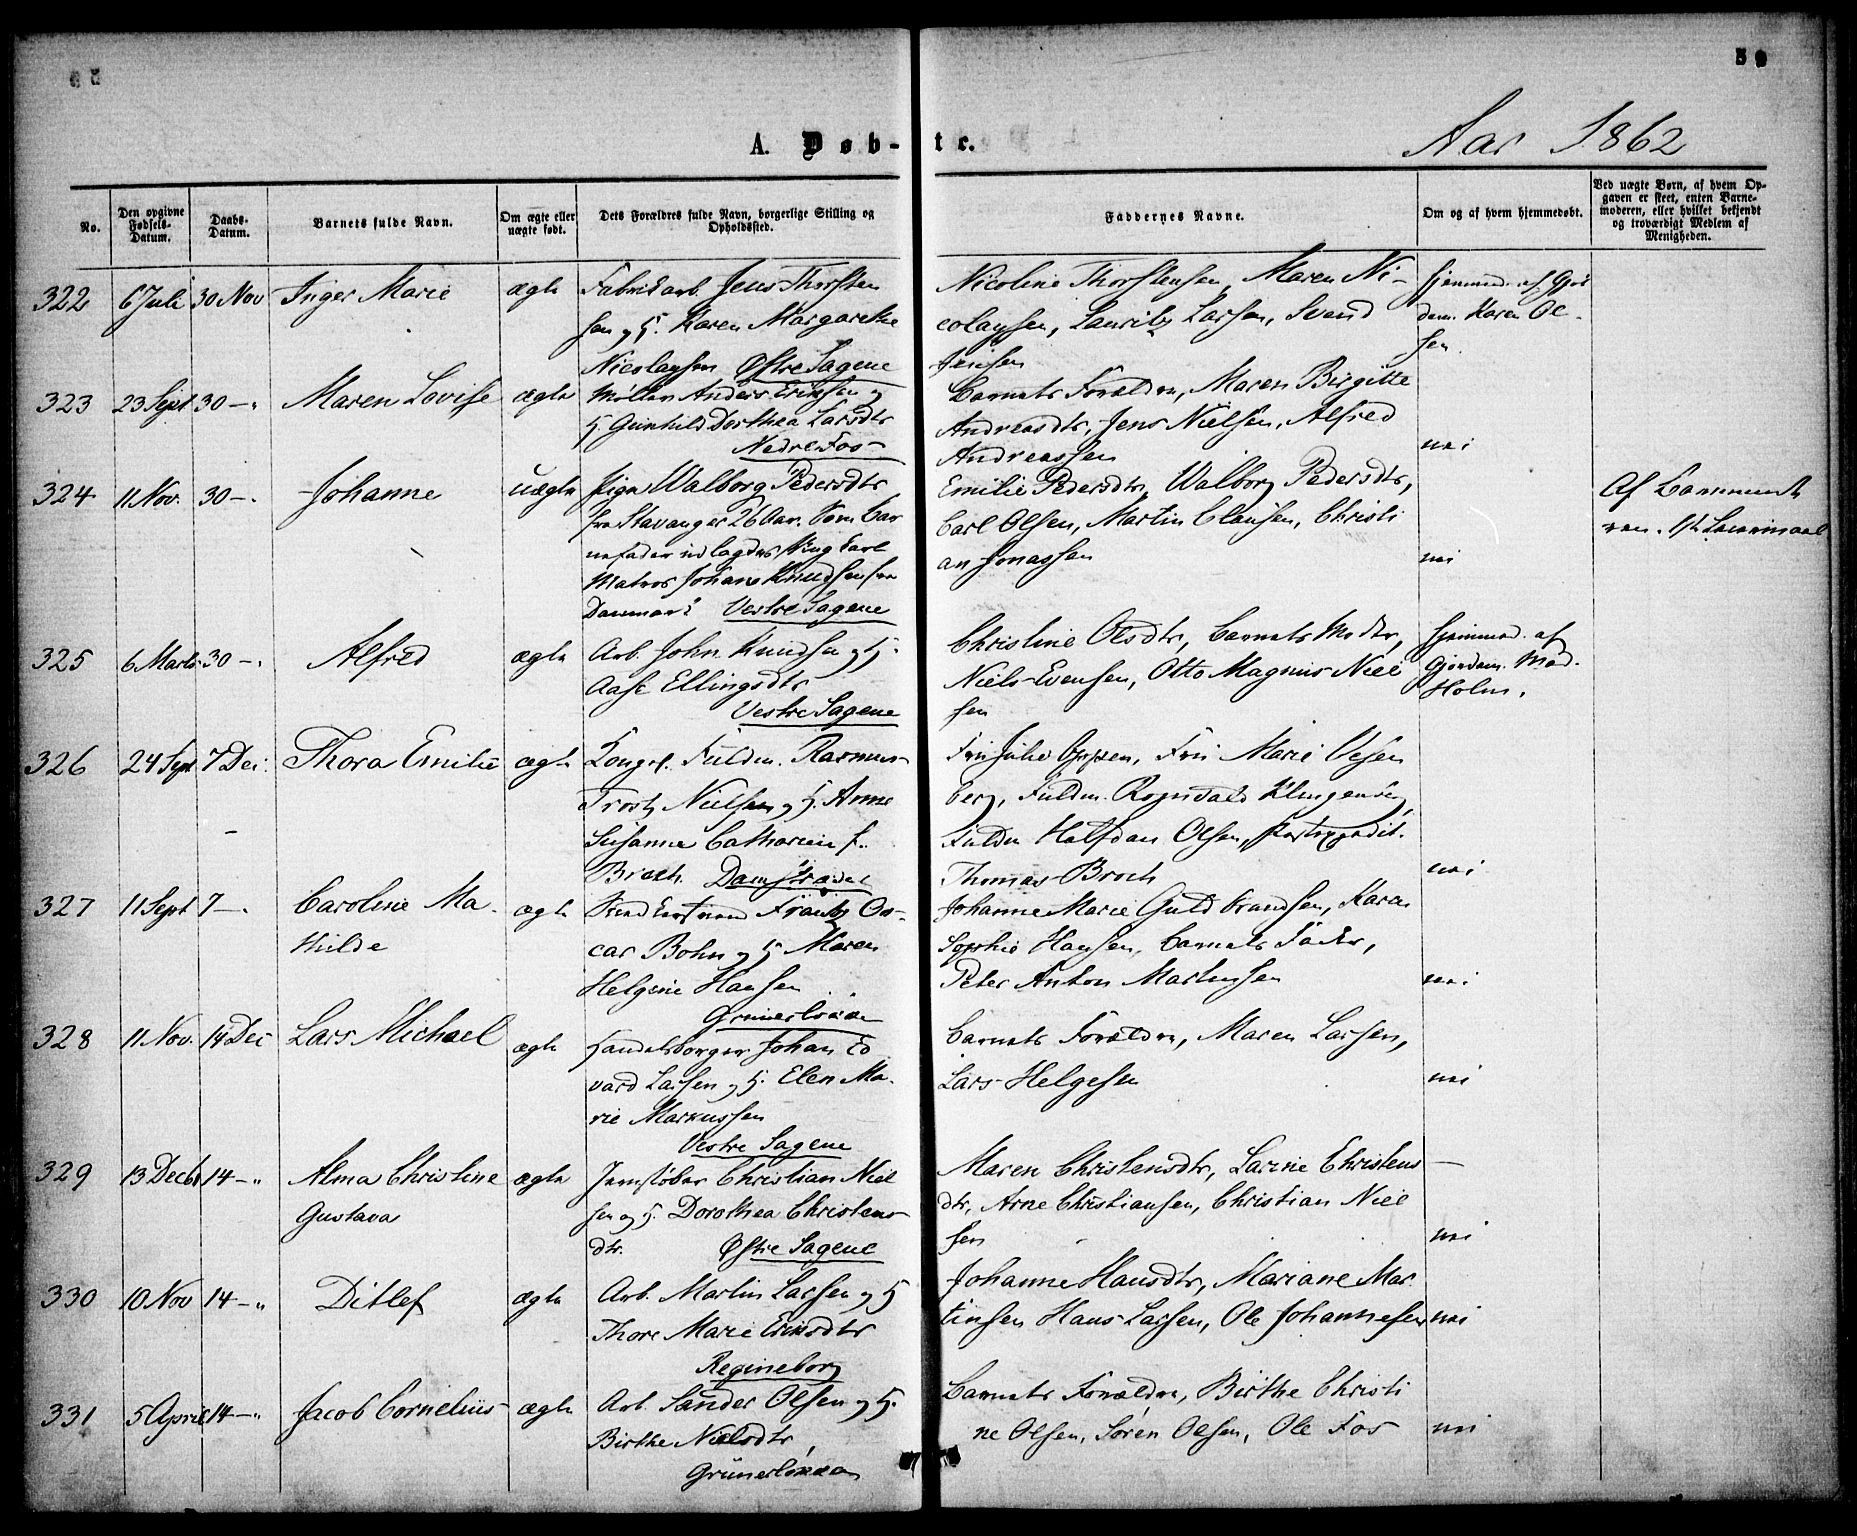 59
A. Døb-te.
Aar 1862
No.
Den opgivne Fødsels-Datum.
Daabs-Datum.
Barnets fulde Navn.
Om ægte eller uægte født.
Dets Forældres fulde Navn, borgerlige Stilling og Opholdssted.
Faddernes Navne.
Om og af hvem hjemmedøbt.
Ved uægte Børn, af hvem Opgaven er skeet, enten Barnemoderen, eller hvilket bekjendt og troværdigt Medlem af Menigheden.
322 6 Juli 30 Nov Inger Marie ægte
Fabrikarb. Jens Thorsten
sen og H. Karen Margarethe
Nicolaysen Østre Sagene
Nicoline Thorstensen, Maren Ni-
colaysen, Lauritz Larsen, Svend
Jensen
hjemmed. af Gjor
dem. Karen Ol-
sen
323 23 Sept 30 -" Maren Lovise ægte
Møller Anders Eriksen og
H. Gunhild Dorthea Larsdtr
Nedre Fos
Barnets Forældre, Maren Birgitte
Andreasdtr, Jens Nielsen, Alfred
Andreassen
nei
324 11 Nov. 30 -. Johanne uægte
Pige Walborg Pedersdtr
fra Stavanger 26 Aar. Som Bar
nefader udlagdes Ung Karl
Matros Johan Knudsen fra
Danmark Vestre Sagene
Emilie Pedersdtr, Walborg Pedersdtr,
Carl Olsen, Martin Clausen, Christi
an Jonassen
nei
Af Barnemode
ren.
325 6 Marts 30 -. Alfred ægte
Arb. John Knudsen og H.
Aase Ellingsdtr
Vestre Sagene
Christine Olsdtr, Barnets Modr,
Niels Evensen, Otto Magnus Niel
sen
hjemmed. af
Gjordem. Mad.
Holm.
326 24 Sept 7 Dec. Thora Emilie ægte
Kongel. Fuldm. Rasmus
Trost Nielsen og H. Anne
Susanne Catharine f.
Broch. Damstrædet
Frk Julie Oppen, Frk Marie Vesen
berg, Fuldm. Rognvald Klingenberg
Fuldm Halfdan Olsen, Postexpedit.
Thomas Broch
nei
327 11 Sept 7 -. Caroline Ma-
thilde
ægte
Frantz Os-
car Bohn og H Maren
Helgine Hansen
Grünerløkken
Johanne Marie Guldbrandsen, Karen
Sophie Hansen, Barnets Fader,
Peter Anton Martinsen
nei
328 11 Nov. 14 Dec Lars Michael ægte
Handelsborger Johan Ed
vard Larsen og H. Elen Ma-
rie Markussen
Vestre Sagene
Barnets Forældre, Maren Larsen,
Lars Helgesen
nei
329 13 Decbr 14 -" Alma Christine
Gustava
ægte
Jernstøber Christian Niel
sen og H. Dorothea Christens
dtr. Østre Sagene
Maren Christensdtr, Larine Christens
dtr, Arne Christiansen, Christian Niel
sen
nei
330 10 Nov 14 -" Ditlef ægte
Arb. Martin Larsen og H
Thore Marie Eriksdtr
Regineborg
Johanne Hansdtr, Mariane Mar
tinsen Hans Larsen, Ole Johannesen
nei
331 5 April 14 -" Jacob Cornelius ægte
Arb. Sander Olsen og H.
Birthe Nielsdtr,
Grünerløkken
Barnets Forældre, Birthe Christi
ne Olsen, Søren Olsen, Ole Fos
nei